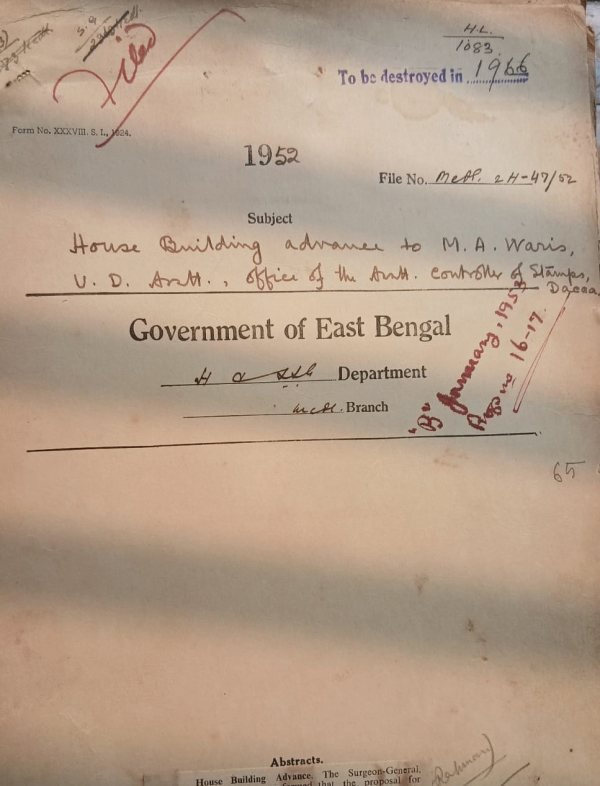 Filed
H.L.
1083
To be destroyed in 1966
Form No. XXXVIII. S. I., 1924.
1952
File No. Medl. 2H-47/52
Subject
House Building advance to M. A. Waris,
U. D. Asstt., office of the Asstt. Controller of Stamps,
Dacca.
Government of East Bengal
Department
Branch
"B" January, 1953
16-17.
65
Abstracts.
House Building Advance. The Surgeon-General,
that the proposal for
Rahman)